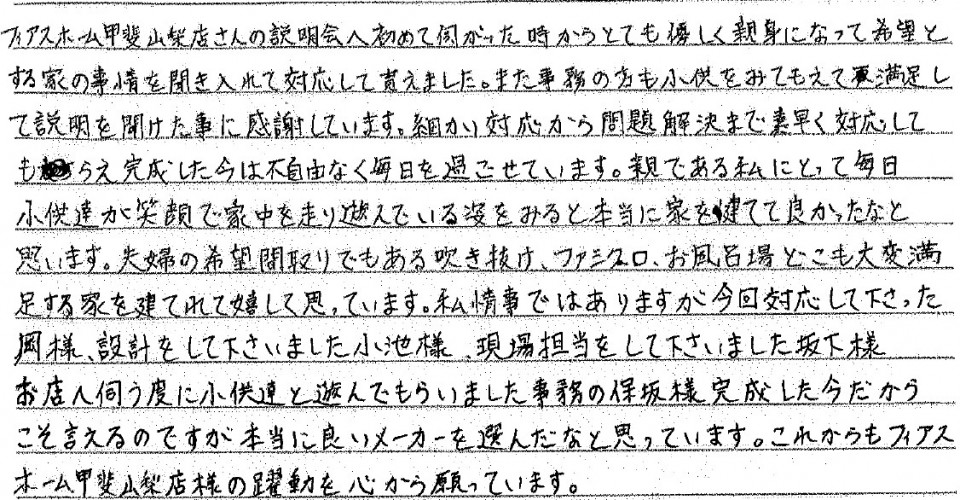 フィアスホーム甲斐山梨店さんの説明会へ初めて伺がった時からとても優しく親身になって希望と
する家の事情を聞き入れて対応して貰えました。また事務の方も小供をみてもえて満足し
て説明を聞けた事に感謝しています。細かい対応から問題解決まで素早く対応して
もらえ完成した今は不自由なく毎日を過ごせています。親である私にとって毎日
小供達が笑顔で家中を走り遊んでいる姿をみると本当に家を建てて良かったなと
思います。夫婦の希望間取りでもある吹き抜け、ファミクロ、お風呂場どこも大変満
足する家を建てれて嬉しく思っています。私情事ではありますが今回対応して下さった
岡様、設計をして下さいました小池様、現場担当をして下さいました坂下様
お店へ伺う度に小供達と遊んでもらいました事務の保坂様完成した今だから
こそ言えるのですが本当に良いメーカーを選んだなと思っています。これからもフィアス
ホーム甲斐山梨店様の躍動を心から願っています。